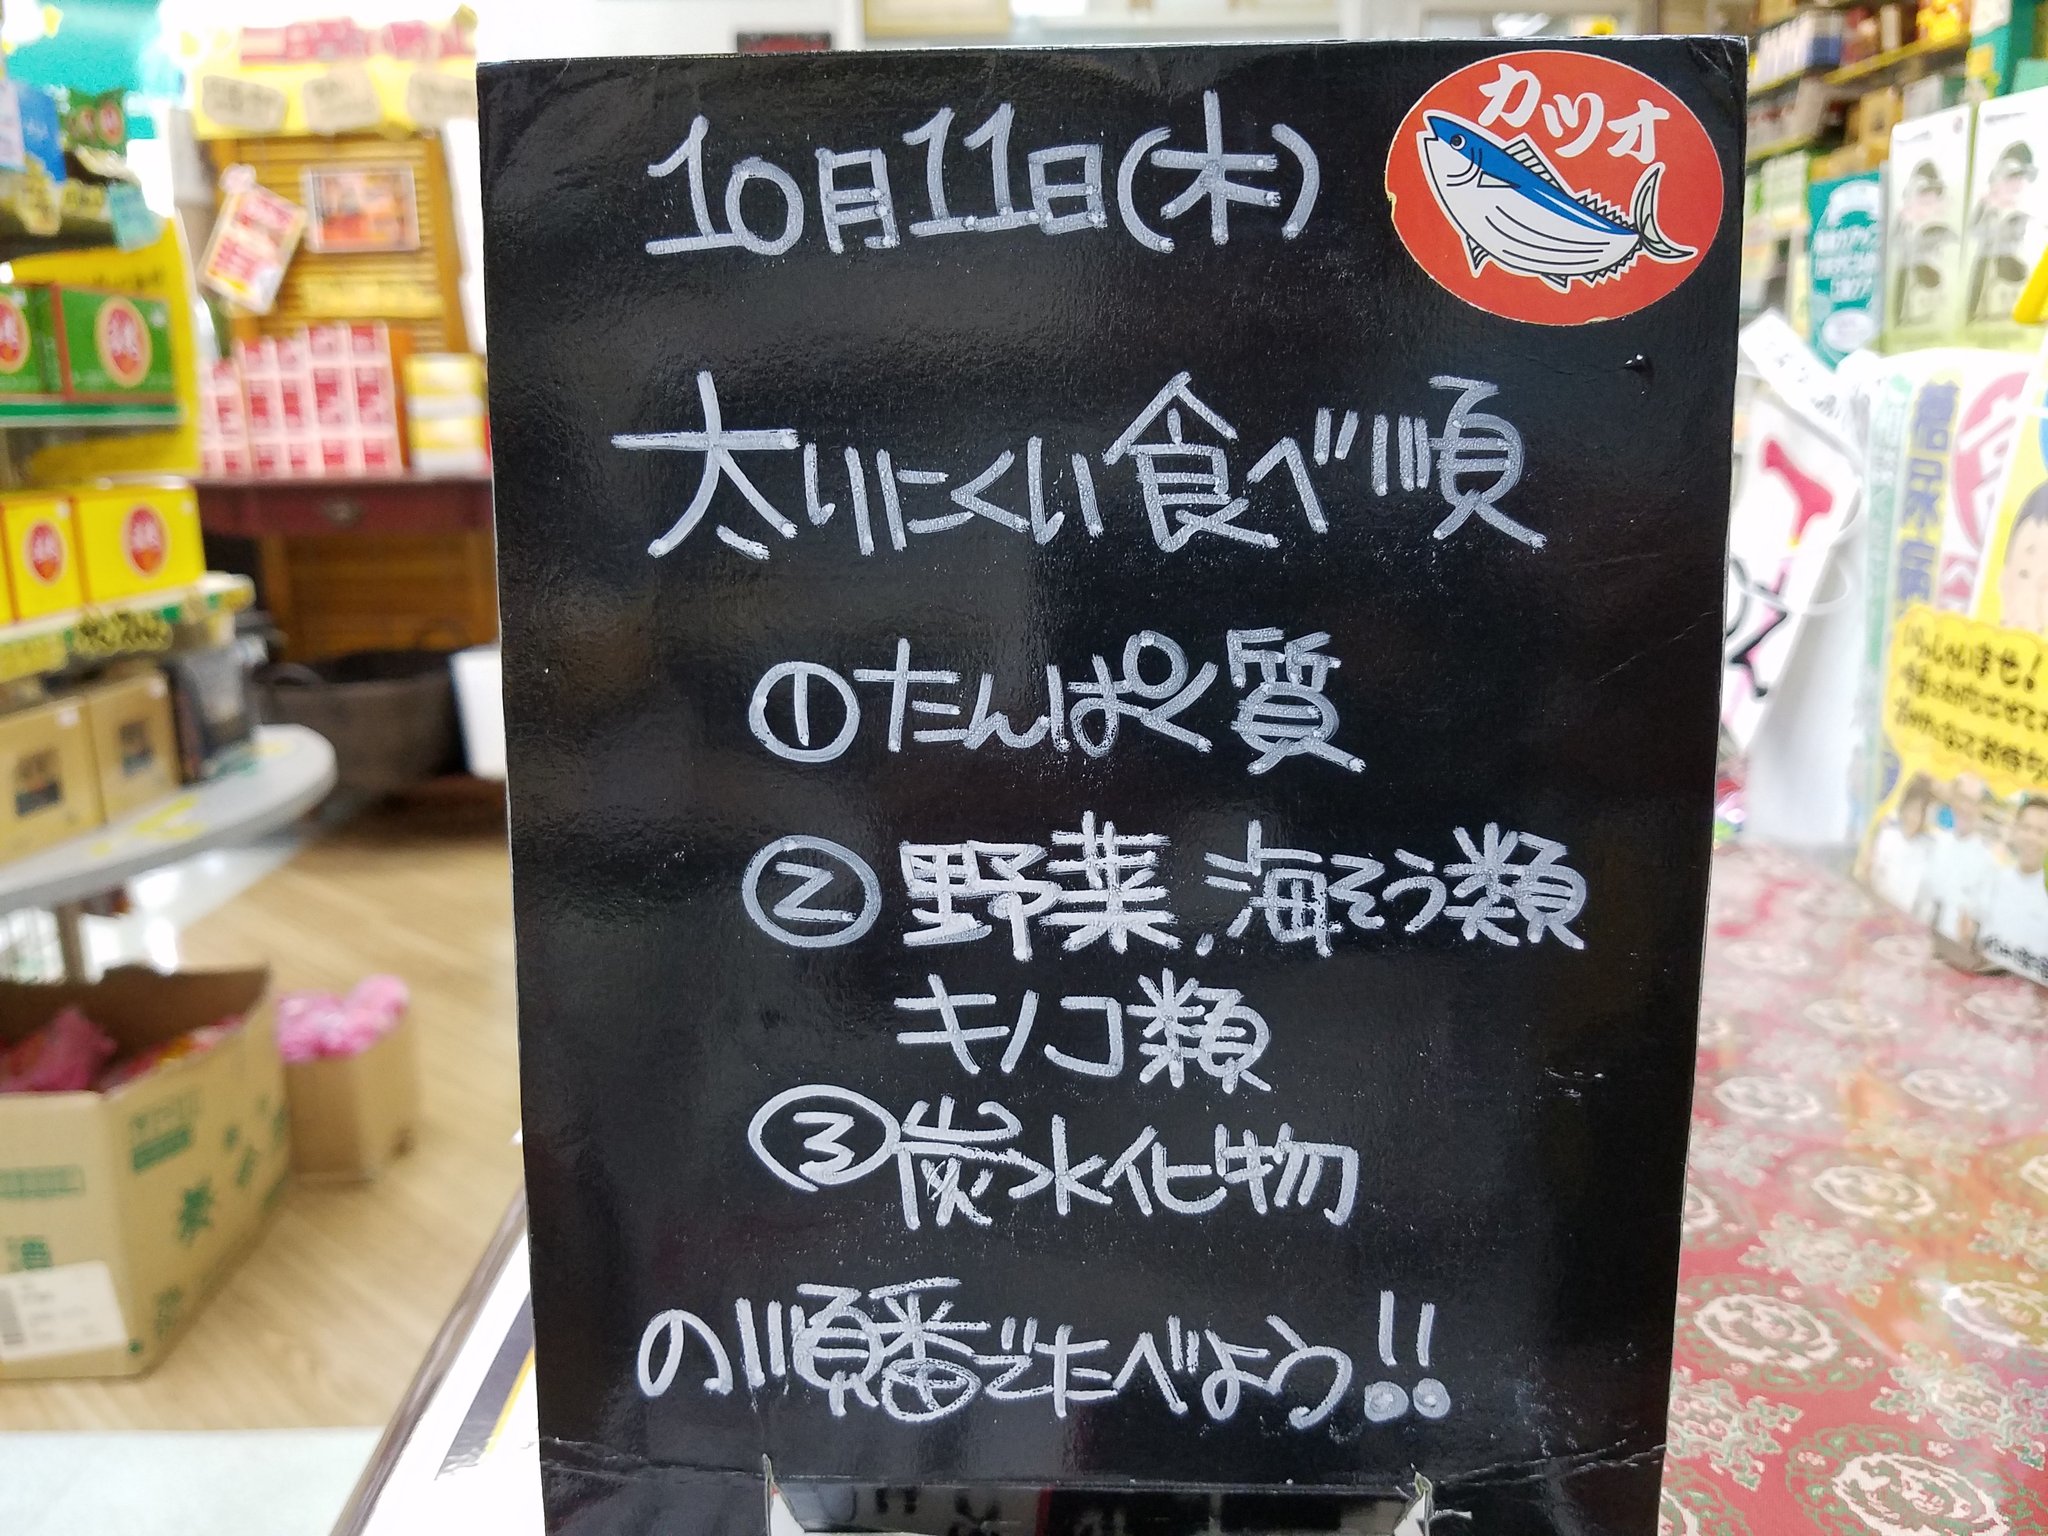 カツオ
10月11日(木)
太りにくい食べ順
①たんぱく質
②野菜、海そう類
キノコ類
③炭水化物
の順番でたべよう!!
いらっしゃいませ!